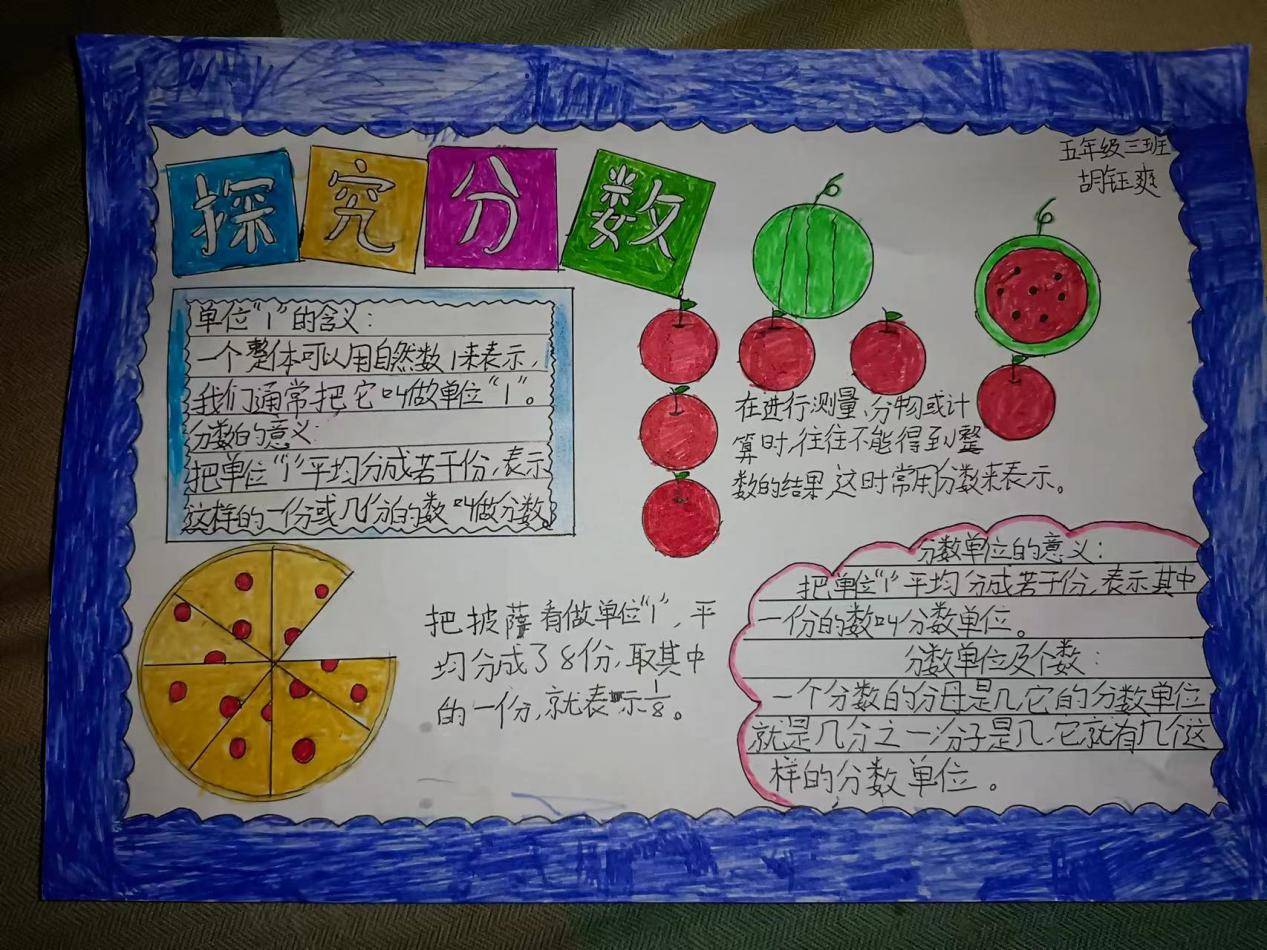 探究分数
五年级三班
胡钰爽
单位“1”的含义：
一个整体可以用自然数1来表示，
我们通常把它叫做单位“1”。
分数的意义：
把单位“1”平均分成若干份，表示
这样的一份或几份的数叫做分数。
在进行测量、分物或计
算时，往往不能得到整
数的结果，这时常用分数来表示。
把披萨看做单位“1”，平
均分成了8份，取其中
的一份，就表示1/8。
分数单位的意义：
把单位“1”平均分成若干份，表示其中
一份的数叫分数单位。
分数单位及个数：
一个分数的分母是几，它的分数单位
就是几分之一，分子是几，它就有几个这
样的分数单位。